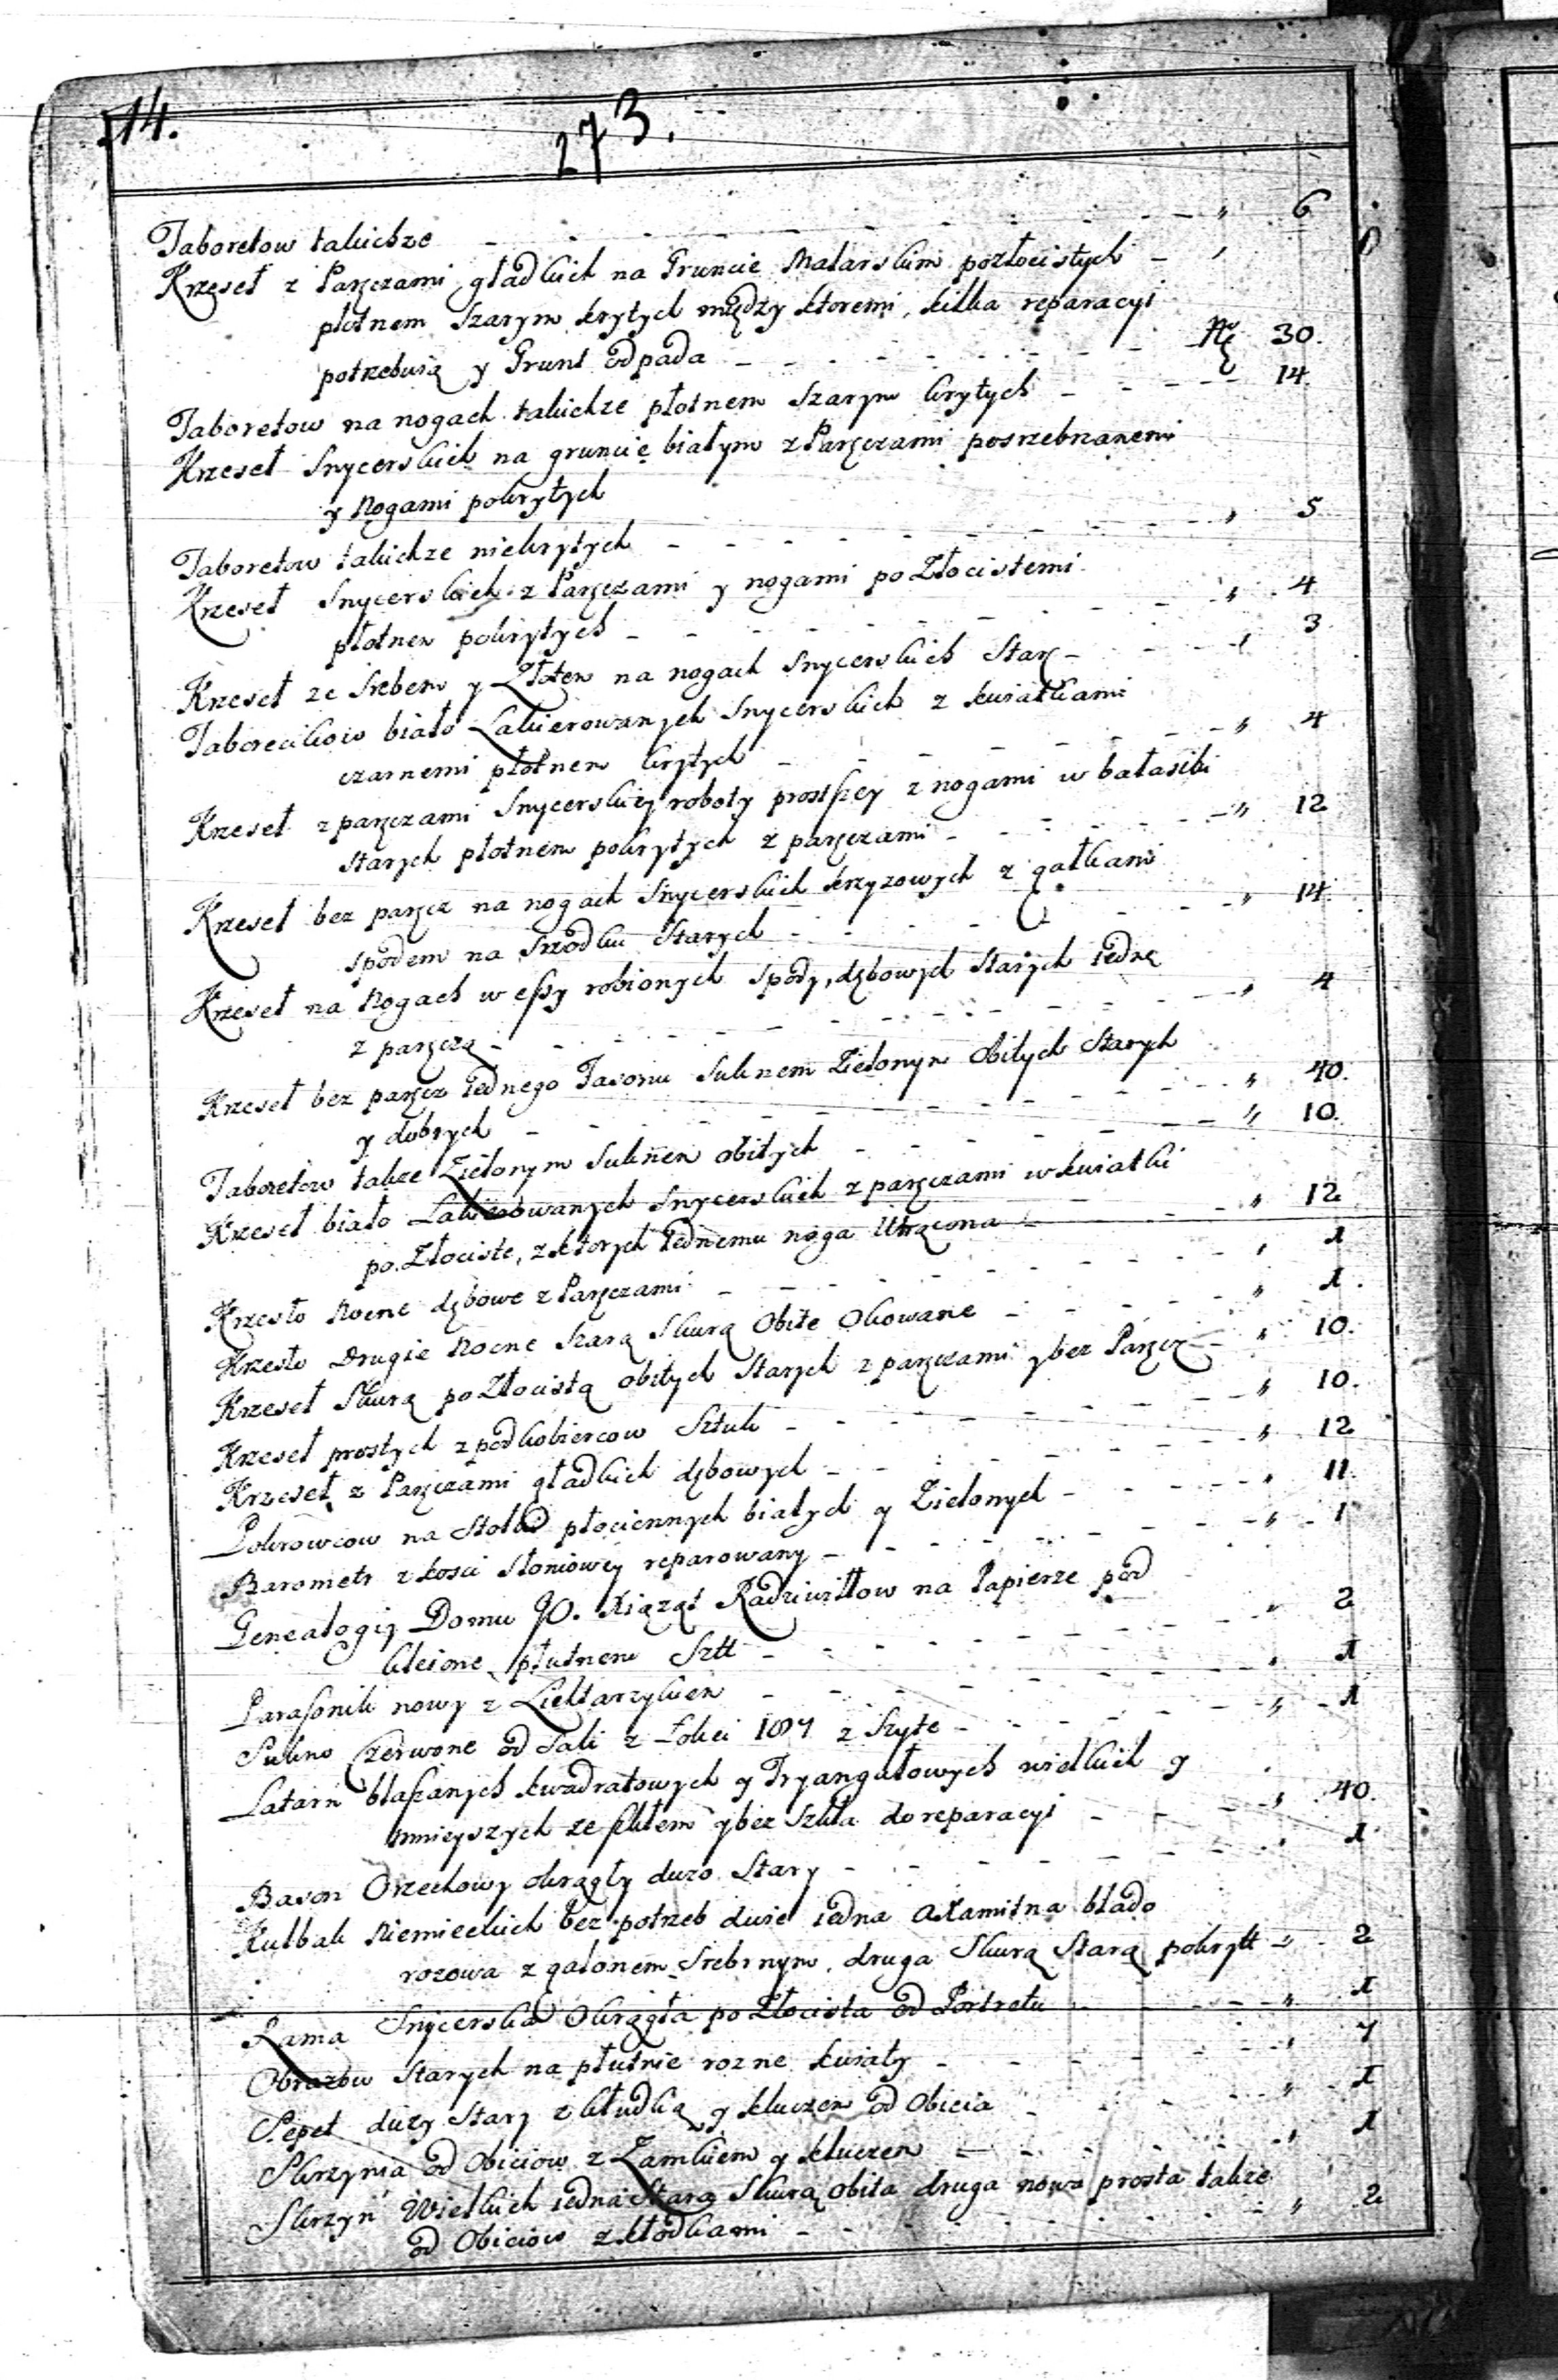 14.
273.
Taboretow takichze - - - " 6
Krzeseł z Paręczami gładkich na Gruncie Malarskim pozłocistych - "
płotnem Szarym krytych między ktoremi, kilka reparacyi
potrzebuią y Grunt odpada - - - 30.
Taboretow na nogach takichze płotnem Szarym krytych - - - 14.
Krzeseł Snycerskich na gruncie białym z Paręczami posrzebrzanemi
y Nogami pokrytych
Taboretow takichze niekrytych - - - " 5
Krzeseł Snycerskich z Paręczami y nogami poZłocistemi
płotnem pokrytych - - - " 4
Krzeseł ze Srebem y Złotem na nogach Snycerskich Star - - - " 3
Taborecikow biało Lakierowanych Snycerskich z kwiatkami
czarnemi płotnem krytych - - - " 4
Krzeseł z paręczami Snycerskiey roboty prostszey z nogami w bałasiki
starych płotnem pokrytych z paręczami - - - " 12
Krzeseł bez paręcz na nogach Snycerskich krzyzowych z gałkami
spodem na Srzodku Starych - - - " 14.
Krzeseł na Nogach w essy robionych spody, dębowych Starych iedne
z paręczą - - - " 4
Krzeseł bez paręcz iednego Fasonu Suknem Zielonym Obitych Starych
y dobrych - - - " 40.
Taboretow takze Zielonym Suknem obitych - - - " 10.
Krzeseł biało Lakierowanych Snycerskich z paręczami w kwiatki
po Złociste, z ktorych iednemu noga Utrącona - - - " 12
Krzesło Nocne dębowe z Paręczami - - - " 1
Krzesło Drugie Nocne Szarą Skurą Obite Okowane - - - " 1.
Krzeseł Skurą po Złocistą obitych Starych z paręczami y bez Paręcz - " 10.
Krzeseł prostych z pod kobiercow Sztuk - - - " 10.
Krzeseł z Paręczami gładkich dębowych - - - " 12
Pokrowcow na Stołki płociennych białych y Zielonych - - - " 11.
Barometr z kosci Słoniowey reparowany - - - " 1
Genealogij Domu JO. Xiąząt Radziwiłłow na Papierze pod
kleione płutnem Sztt - - - " 2
Parasonik nowy z Lichtarzykiem - - - " 1
Sukno Czerwone od Sali z Łokci 187 z Szyte - - - " 1
Latarn blaszanych kwadratowych y Tryangułowych wielkich y
mnieyszych ze szkłem y bez Szkła do reparacyi - - - " 40.
Bason Orzechowy okrągły duzo Stary - - - " 1
Kulbak Niemieckich bez potrzeb dwie iedna axamitna blado
rozowa z galonem Srebrnym, druga Skurą Starą pokrytt - " 2
Rama Snycerska Okrągła po Złocista od Portretu - - - " 1
Obrazow Starych na płutnie rozne kwiaty - - - " 7
Sepet duzy Stary z kłudką y kluczem od Obicia - - - " 1
Skrzynia od Obiciow z Zamkiem y kluczem - - - " 1
Skrzyn Wielkich iedna Starą Skurą obita druga nowa prosta takze
od Obiciow z kłodkami - - - " 2